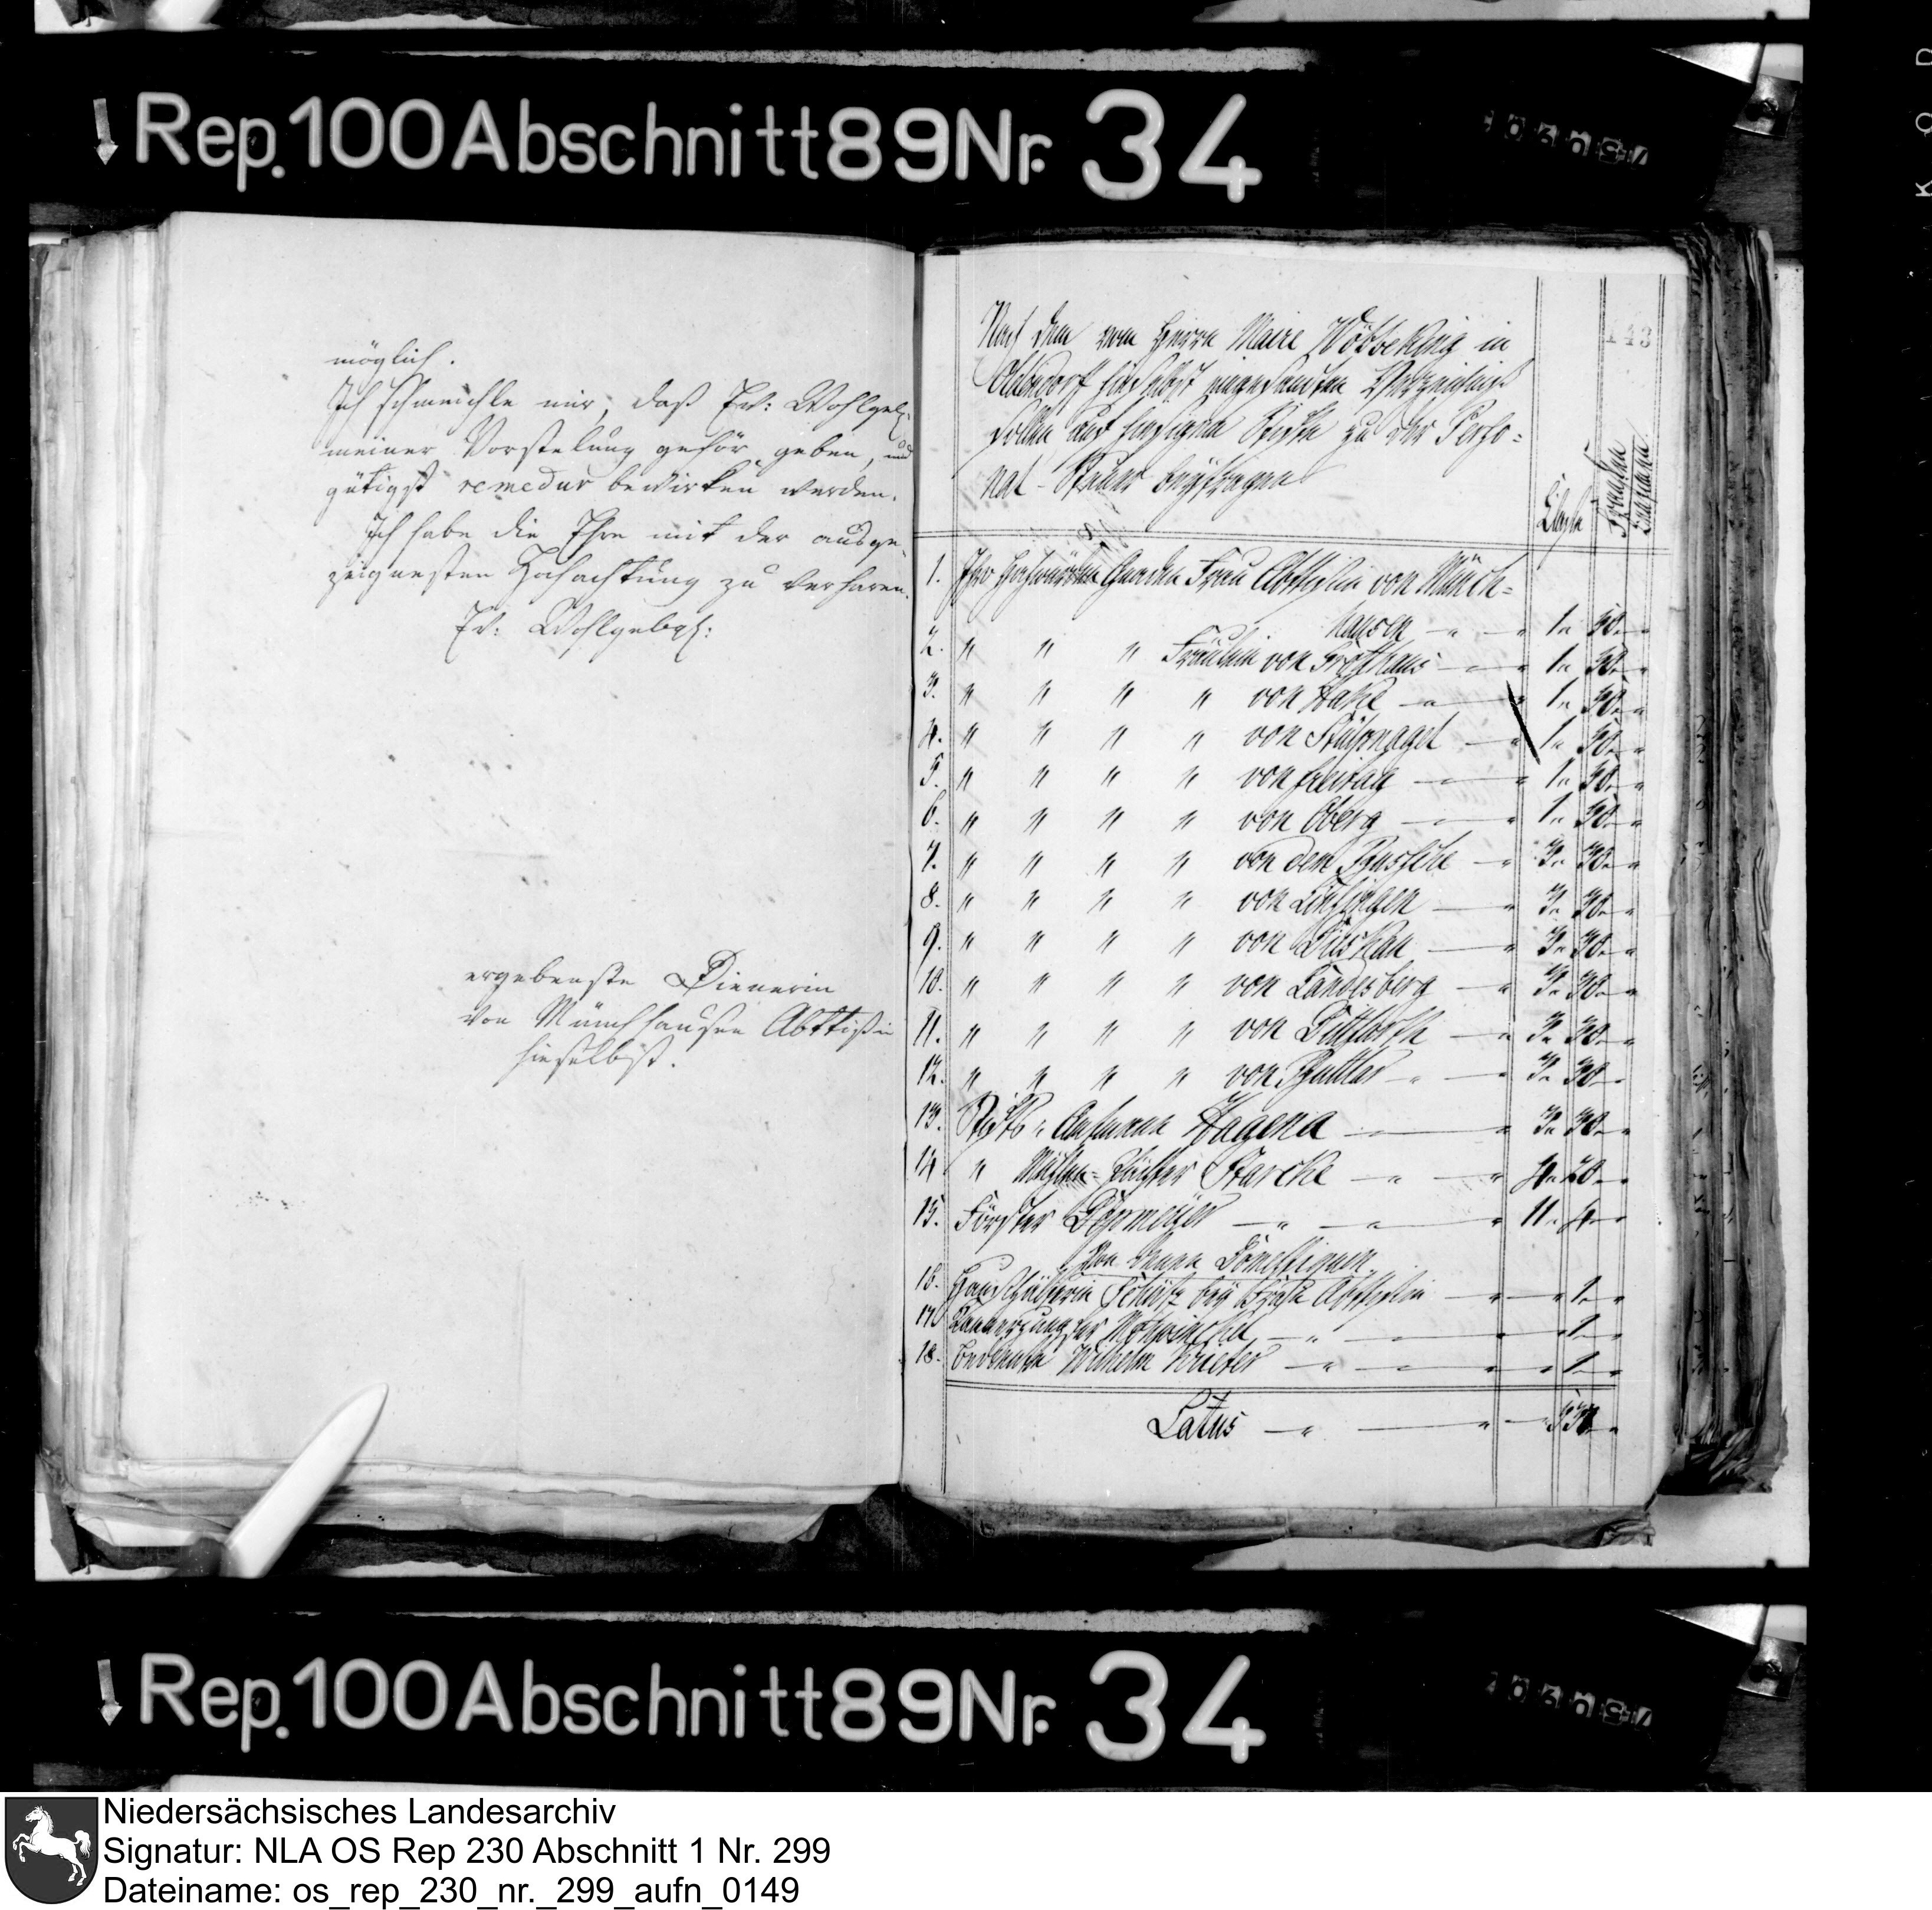 Rep. 100 Abschnitt 89 Nr. 34
möglich.
Ich schmeichle mir, daß Ew: Wohlgeb:
meiner Vorstelung gehör geben, und
gütigst remedur bewirken werden.
Ich habe die Ehre mit der ausge-
zeignesten Hochachtung zu verharen.
Ew: Wohlgebo:
ergebenste Dienerin
von Münchhausen Abttißin
hieselbst.
143
Nach dem vom Herrn Maire in
Oldendorf hieselbst eingesandten Verzeichniß
sollen aus hiesigem Stifte zu der Perso-
nal-Steuer beytragen
Classe
Franken
Centimen
1. Ihro Hochwürden Gnaden Frau Abttissin von Münch-
hausen 1. 50.
2. " " " Fräulein von Grothaus 1. 50.
3. " " " " von Hake 1. 50.
4. " " " " von 1. 50.
5. " " " " von Freitag 1. 50.
6. " " " " von Oberg 1. 50.
7. " " " " von dem Bussche 3. 30.
8. " " " " von Linsingen 3. 30.
9. " " " " von 3. 30.
10. " " " " von Landesberg 3. 30.
11. " " " " von Ditfurth 3. 30.
12. " " " " von Buttlar 3. 30.
13. Stifts-Amtmann Hagena 3. 30.
14. " Mühlen-Pächter Starcke 4. 20.
15. Förster 11. 4.
Von denen Domestiquen
16. Haushälterin bey Frau Abttissin 1.
17. Kammerjungfer 1.
18. Bediente Wilhelm 1.
Latus
Rep. 100 Abschnitt 89 Nr. 34
Niedersächsisches Landesarchiv
Signatur: NLA OS Rep 230 Abschnitt 1 Nr. 299
Dateiname: os_rep_230_nr._299_aufn_0149